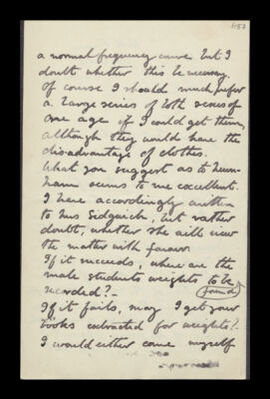 a normal frequency curve but I
doubt whether this be necessary.
Of course I should much prefer
a large series of both sexes of
one age if I could get them,
although they would have the
disadvantage of clothes.
What you suggest as to Newn-
ham seems to me excellent.
I have accordingly written
to Mrs Sidgwick, but rather
doubt, whether she will view
the matter with favour.
If it succeeds, where are the
male students weights to be
recorded? - found
If it fails, may I get your
books extracted for weights?
I would either come myself